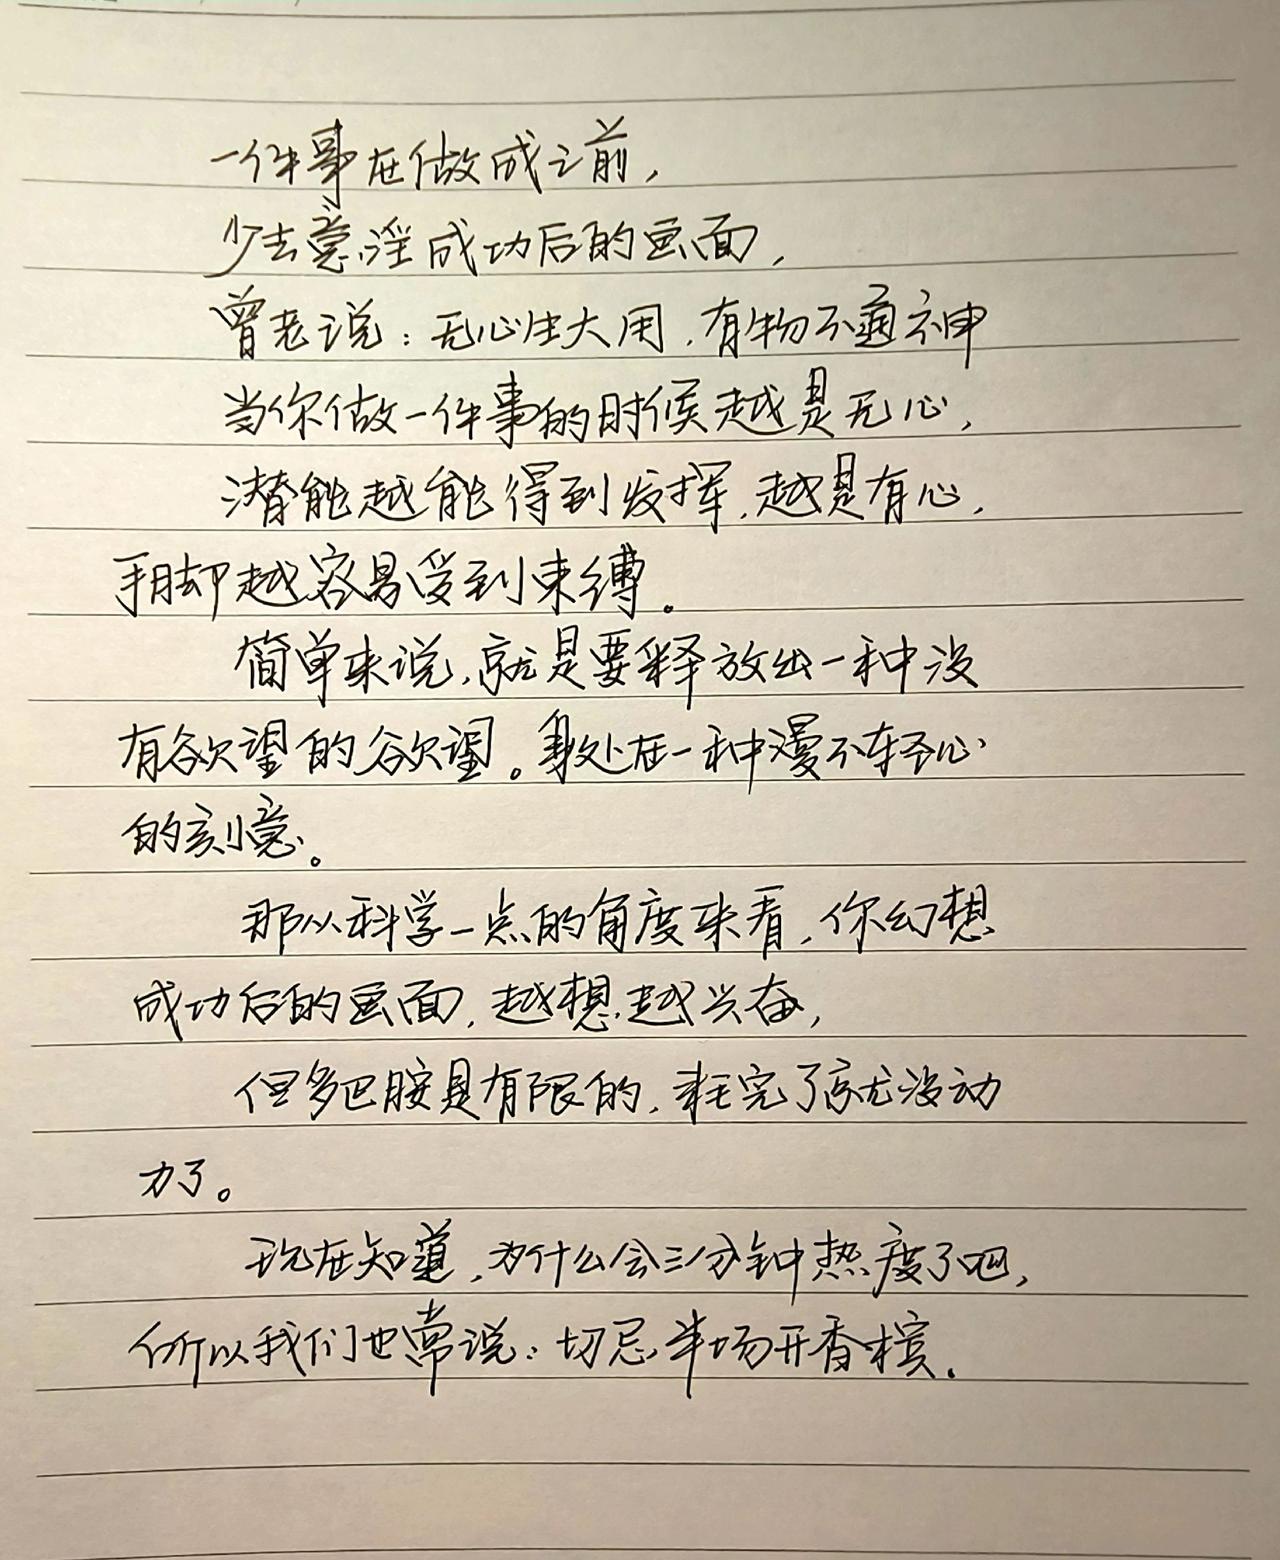 一件事在做成之前，
少去意淫成功后的画面，
曾老说：无心生大用，有物不通神
当你做一件事的时候越是无心，
潜能越能得到发挥，越是有心，
手脚越容易受到束缚。
简单来说，就是要释放出一种没
有欲望的欲望。身处在一种漫不经心
的刻意。
那从科学一点的角度来看，你幻想
成功后的画面，越想越兴奋，
但多巴胺是有限的，耗完了就没动
力了。
现在知道，为什么会三分钟热度了吧，
所以我们也常说：切忌半场开香槟。